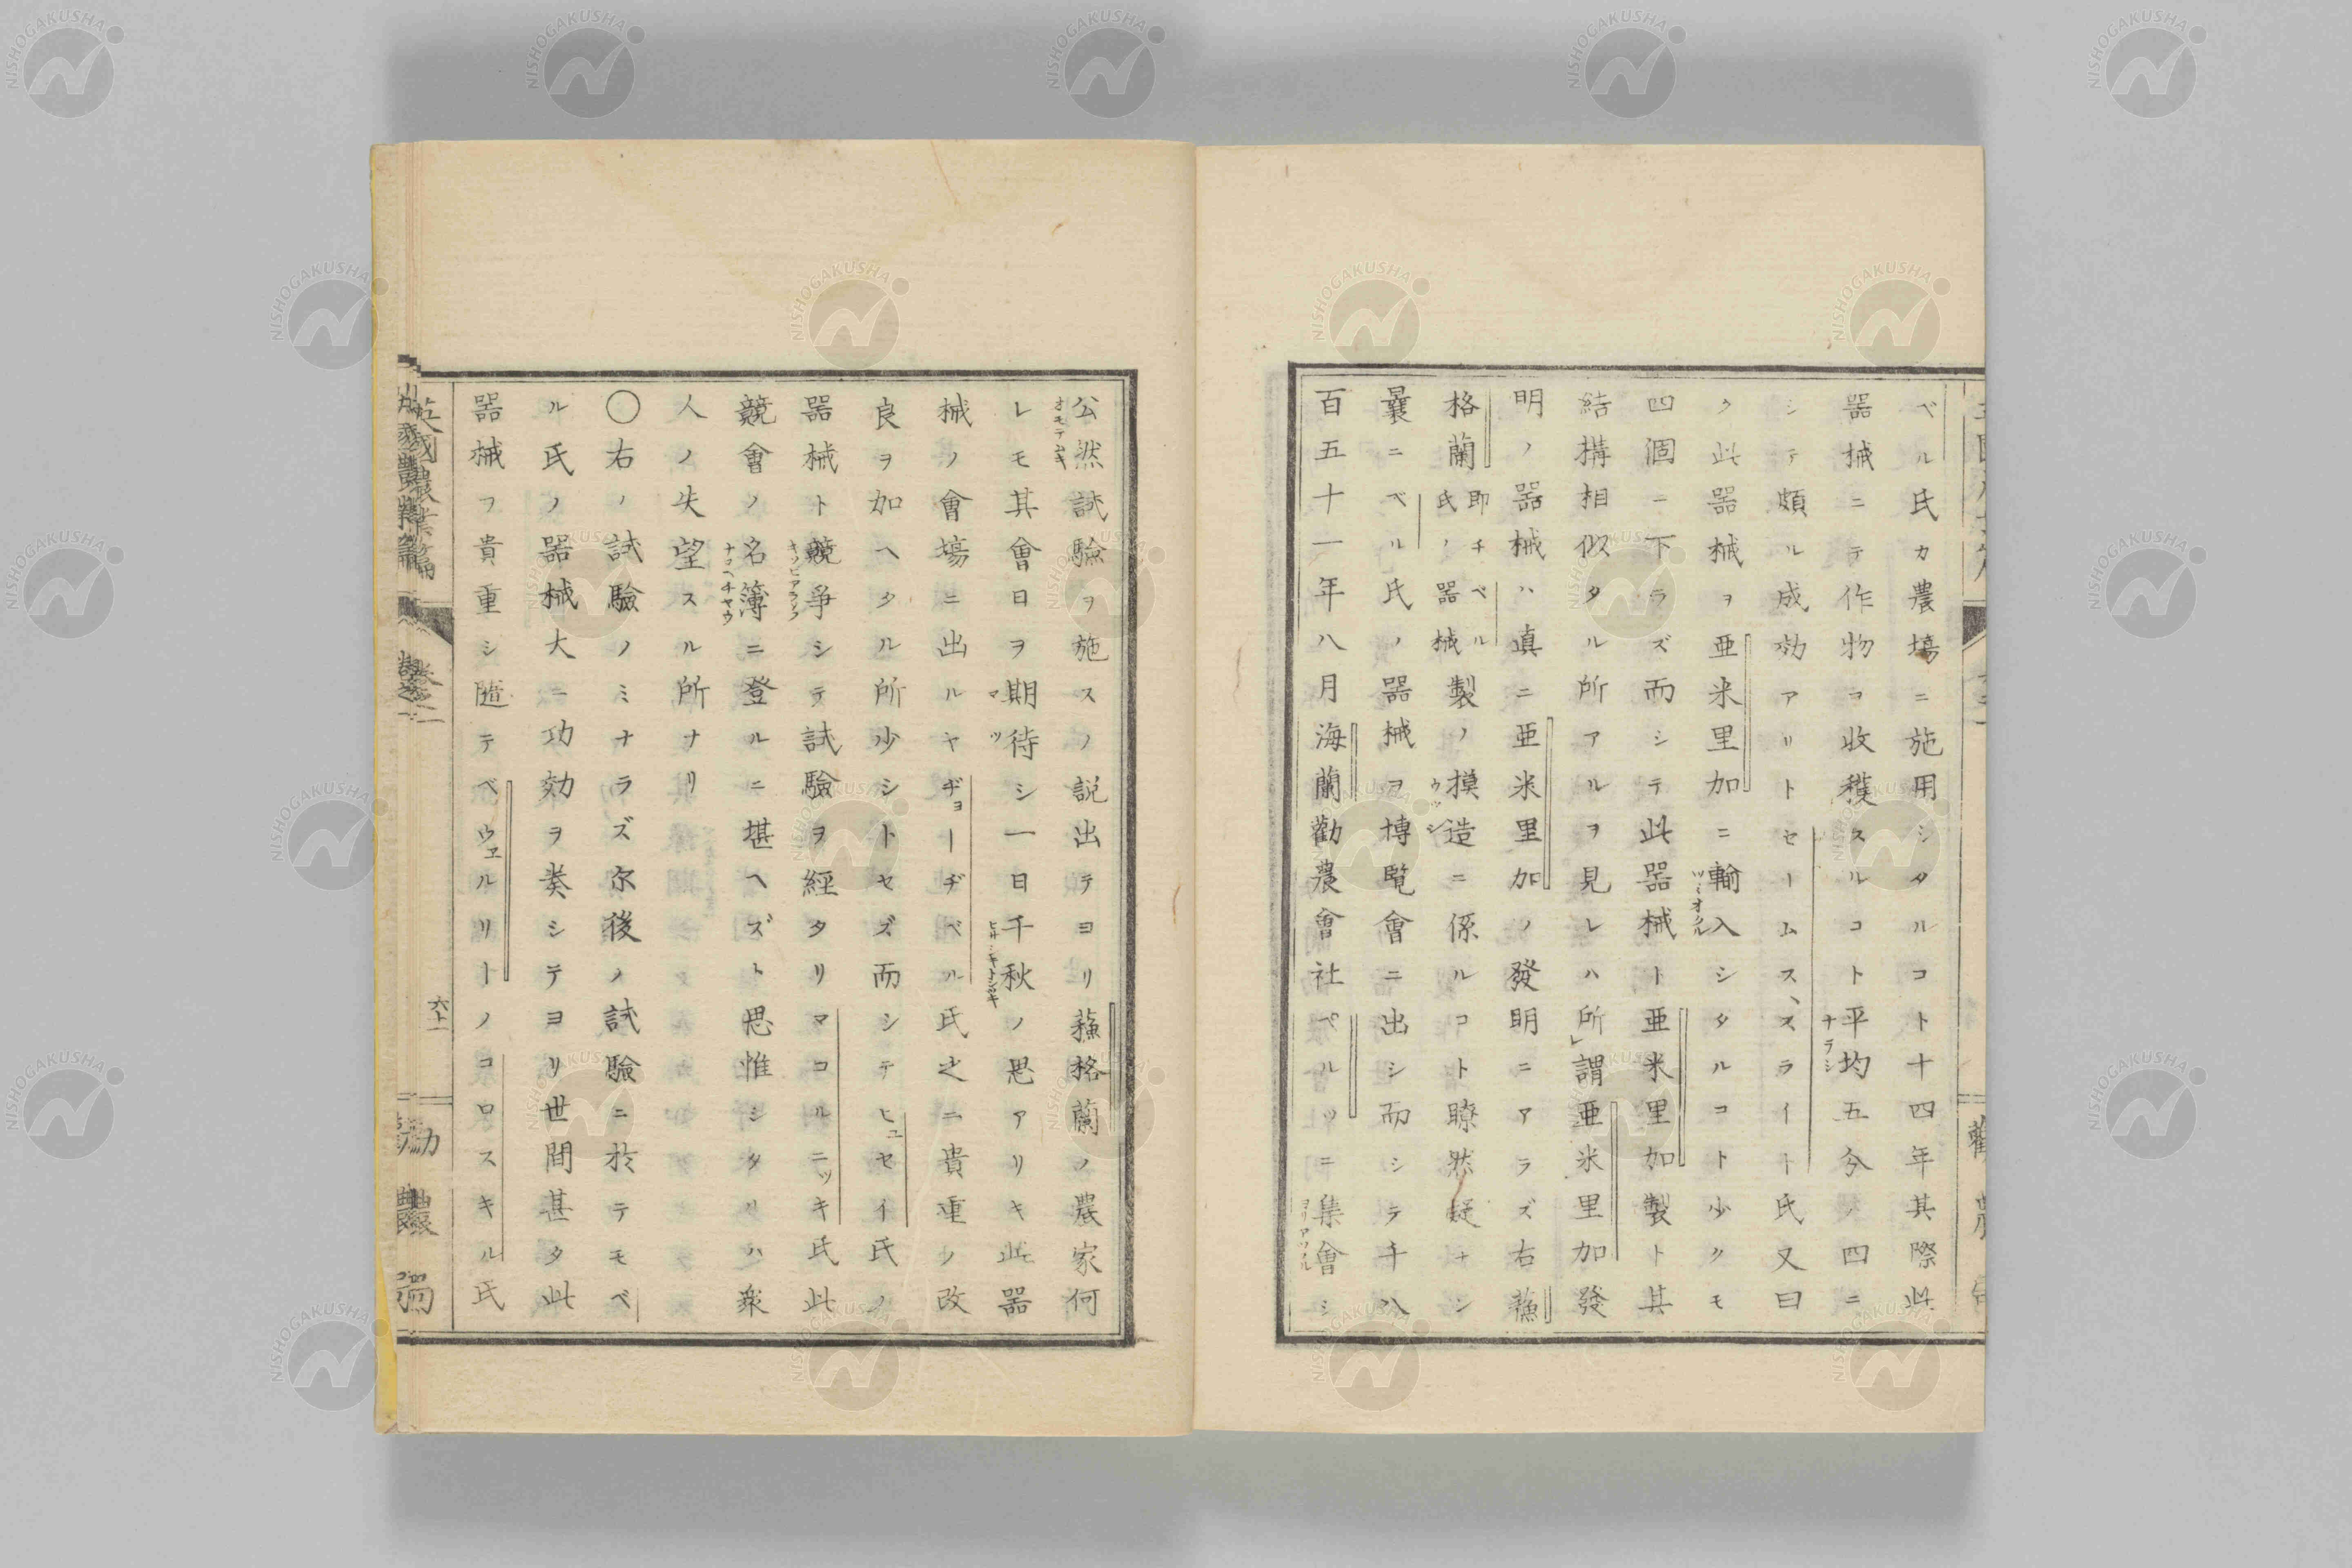 ベル氏カ農塲ニ施用シタルコト十四年其際此
器械ニテ作物ヲ收穫スルコト平均五分ノ四ニ
シテ頗ル成効アリトセームススライト氏又曰
ク此器械ヲ亜米里加ニ輸入シタルコト少クモ
四個ニ下ラズ而シテ此器械ト亜米里加製ト其
結構相似タル所アルヲ見レハ所謂亜米里加發
明ノ器械ハ真ニ亜米里加ノ發明ニアラズ右蘓
格蘭即チベル氏ノ器械製ノ摸造ニ係ルコト瞭然疑ナシ
曩ニベル氏ノ器械ヲ博覧會ニ出シ而シテ千八
百五十一年八月海蘭勸農會社ペルツニ集會シ
公然試驗ヲ施スノ説出テヨリ蘓格蘭ノ農家何
レモ其會日ヲ期待シ一日千秋ノ思アリキ此器
械ノ會塲ニ出ルヤヂョーヂベル氏之ニ貴重ノ改
良ヲ加ヘタル所少シトセズ而シテヒュセイ氏ノ
器械ト競爭シテ試驗ヲ經タリマコルニッキ氏此
競會ノ名簿ニ登ルニ堪ヘズト思惟シタリハ衆
人ノ失望スル所ナリ
〇右ノ試驗ノミナラズ尓後ノ試驗ニ於テモベ
ル氏ノ器械大ニ功効ヲ奏シテヨリ世間甚タ此
器械ヲ貴重シ隨テベウェルリーノコロスキル氏
英國農業篇
卷之二
六十一
勸農局